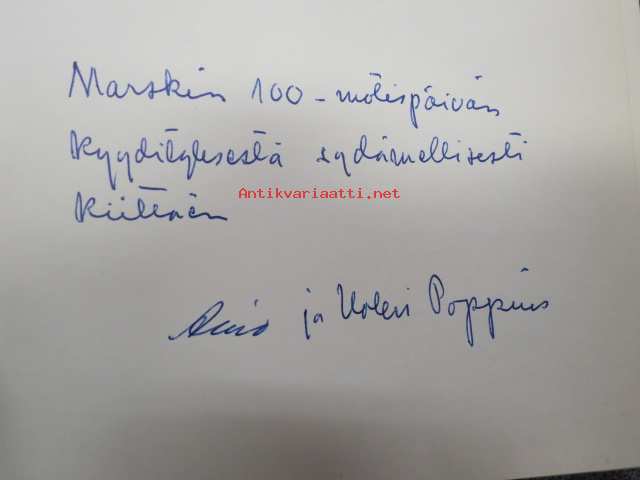 Marskin 100-vuotispäivän
kyydityksestä sydämellisesti
Antikvariaatti.net
kiittäen
Aino ja Uolevi Poppius